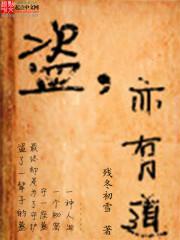 起点中文网
盗，
亦有道
残冬初雪 著
盗了一辈子的墓
最终却是为了守护
守一座墓
一个秘密
一种人